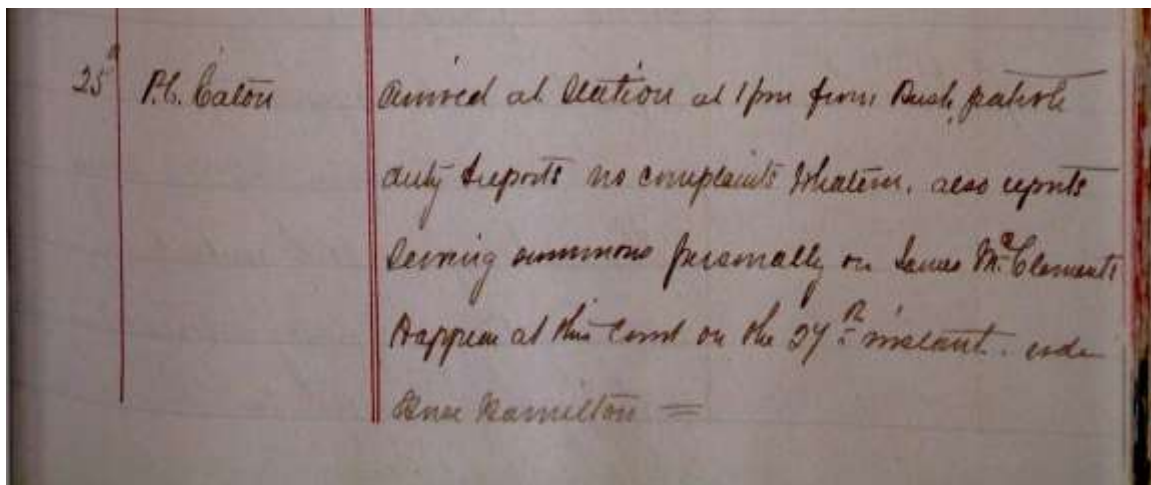 25th P.C. Eaton Arrived at Station at 1pm from Bush patrole
duty & reports no complaints whatever. also reports
serving summons personally on James McClements
to appear at this Court on the 27th instant.
Hamilton =